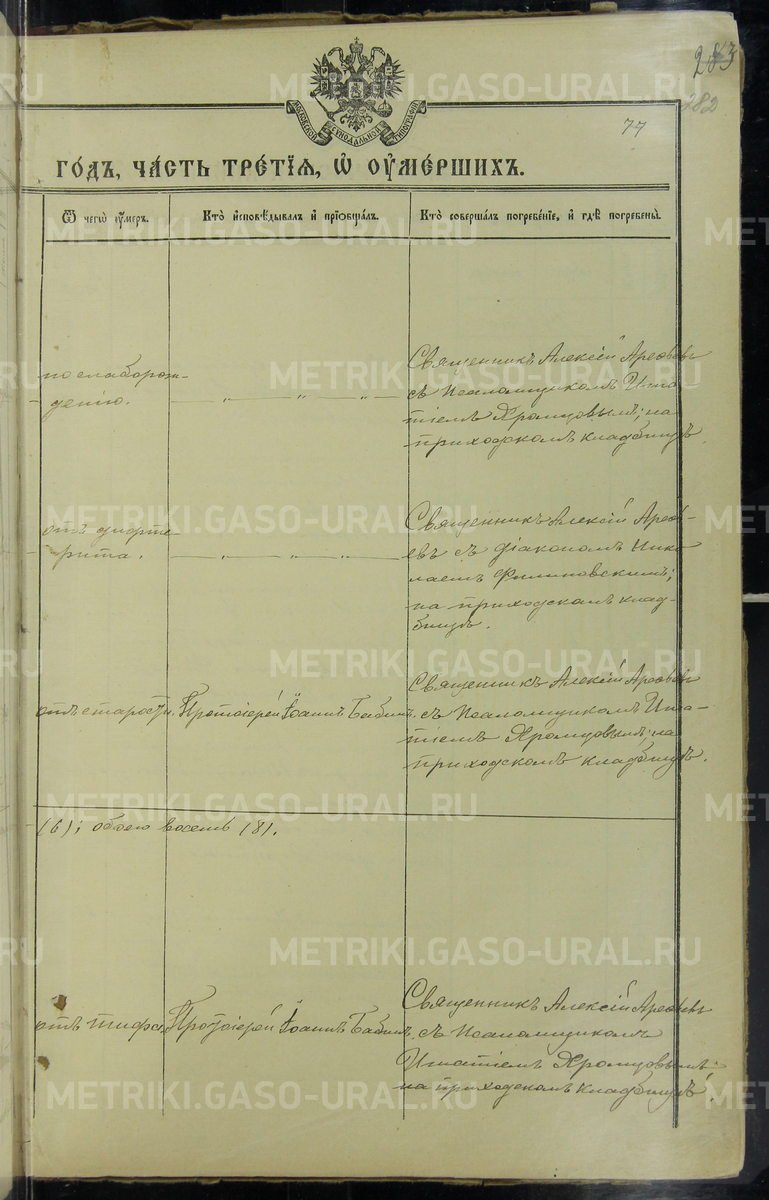 283
282
77
МОСКОВСКОЙ СѴНОДАЛЬНОЙ ТИПОГРАФІИ
ГО́ДЪ, ЧА́СТЬ ТРЕ́ТІѦ, Ѡ҆ ОУ҆МЕ́РШИХЪ.
Ѿ чегѡ̀ ᲂу҆́меръ.
Кто̀ и҆сповѣ́дывалъ и҆ прїѡбща́лъ.
Кто̀ соверша́лъ погребе́нїе, и҆ гдѣ̀ погребены̀.
по слаборож-
дению.
— „ — „ — „ —
Священникъ Алексій Арефьевъ
съ Псаломщикомъ Игна-
тіемъ Хромцовымъ; на
приходскомъ кладбищѣ.
отъ дифте-
рита.
— „ — „ — „ —
Священникъ Алексій Арефь-
евъ съ діакономъ Нико-
лаемъ Филиновскимъ;
на приходскомъ клад-
бищѣ.
отъ старости.
Протоіерей Іоаннъ Бабинъ.
Священникъ Алексій Арефьевъ
съ Псаломщикомъ Игна-
тіемъ Хромцовымъ; на
приходскомъ кладбищѣ.
(6); обоего восемь (8).
отъ тифа.
Протоіерей Іоаннъ Бабинъ.
Священникъ Алексій Арефьевъ
съ Псаломщикомъ
Игнатіемъ Хромцовымъ;
на приходскомъ кладбищѣ.
METRIKI.GASO-URAL.RU